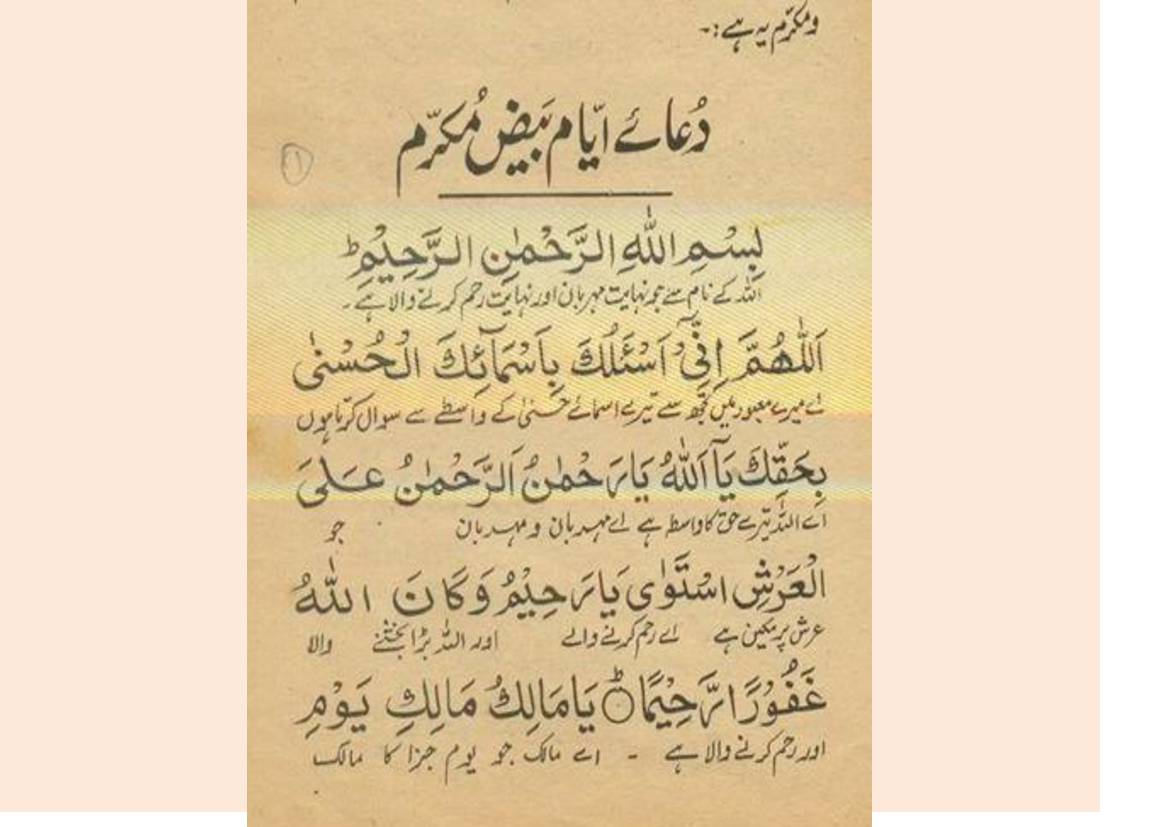 ومکرّم یہ ہے:-
دُعائے ایّام بَیض مُکرّم
بِسْمِ اللّٰهِ الرَّحْمٰنِ الرَّحِيْمِ ط
اللہ کے نام سے جو نہایت مہربان اور نہایت رحم کرنے والا ہے۔
اَللّٰهُمَّ اِنِّيْٓ اَسْئَلُكَ بِاَسْمَآئِكَ الْحُسْنٰى
اے میرے معبود میں تجھ سے تیرے اسمائے حسنیٰ کے واسطے سے سوال کرتا ہوں
بِحَقِّكَ يَآ اَللّٰهُ يَارَحْمٰنُ اَلرَّحْمٰنُ عَلَى
اے اللہ تیرے حق کا واسطہ ہے اے مہربان و مہربان جو
الْعَرْشِ اسْتَوٰى يَارَحِيْمُ وَكَانَ اللّٰهُ
عرش پر مکین ہے اے رحم کرنے والے اور اللہ بڑا بخشنے والا
غَفُوْرًا رَّحِيْمًا ○ط يَامَالِكُ مَالِكِ يَوْمِ
اور رحم کرنے والا ہے - اے مالک جو یوم جزا کا مالک